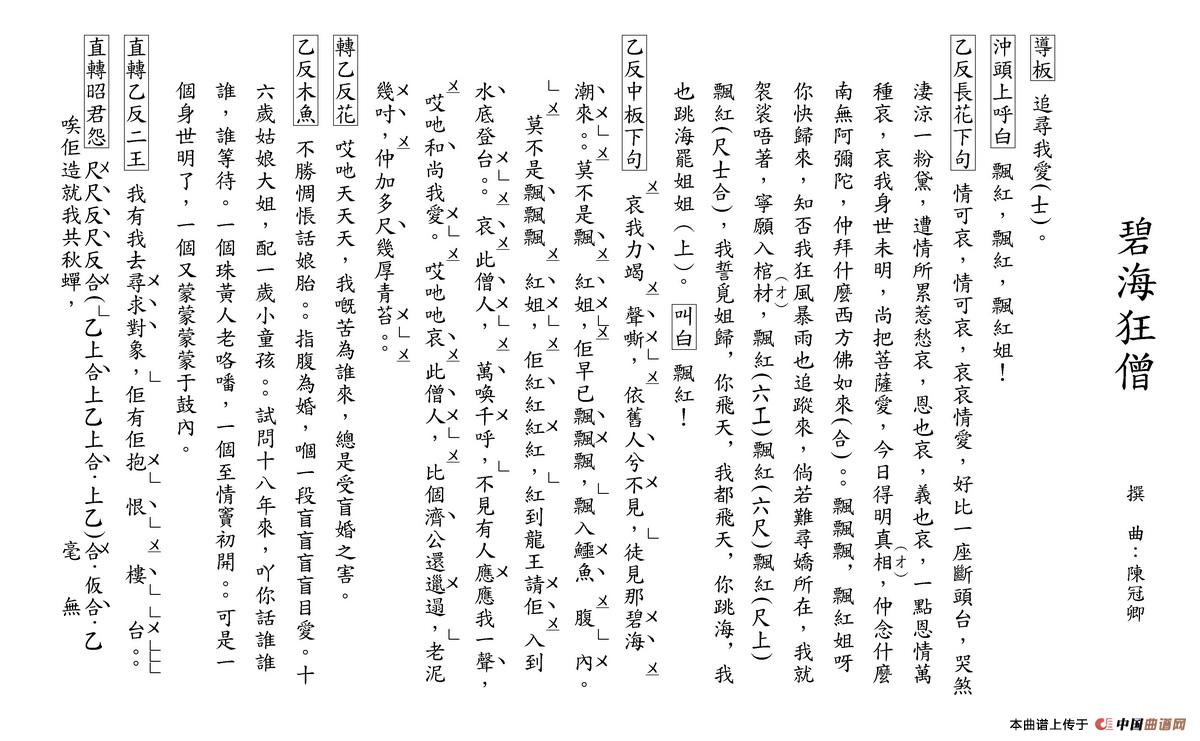 碧海狂僧
撰 曲：陳冠卿
導板 追尋我愛(士)。
沖頭上呼白 飄紅，飄紅，飄紅姐！
乙反長花下句 情可哀，情可哀，哀哀情愛，好比一座斷頭台，哭煞
淒涼一粉黛，遭情所累惹愁哀，恩也哀，義也哀，一點恩情萬
種哀，哀我身世未明，尚把菩薩愛，今日得明真相(才)，仲念什麼
南無阿彌陀，仲拜什麼西方佛如來(合)。。飄飄飄，飄紅姐呀
你快歸來，知否我狂風暴雨也追蹤來，倘若難尋嬌所在，我就
袈裟唔著，寧願入棺材(才)，飄紅(六工)飄紅(六尺)飄紅(尺上)
飄紅(尺士合)，我誓覓姐歸，你飛天，我都飛天，你跳海，我
也跳海罷姐姐（上）。叫白 飄紅！
乙反中板下句 哀我力竭 聲嘶，依舊人兮不見，徒見那碧海
潮來。。莫不是飄 紅姐，佢早已飄飄飄，飄入鱷魚 腹 內。
莫不是飄飄飄 紅姐，佢紅紅紅，紅到龍王請佢 入到
水底登台。。哀 此僧人， 萬喚千呼，不見有人應應我一聲，
哎吔和尚我愛。哎吔吔哀 此僧人，比個濟公還邋遢，老泥
幾吋，仲加多尺幾厚青苔。。
轉乙反花 哎吔天天天，我嘅苦為誰來，總是受盲婚之害。
乙反木魚 不勝惆悵話娘胎。。指腹為婚，嗰一段盲盲盲盲目愛。十
六歲姑娘大姐，配一歲小童孩。。試問十八年來，吖你話誰誰
誰，誰等待。一個珠黃人老咯噃，一個至情竇初開。。可是一
個身世明了，一個又蒙蒙蒙蒙于鼓內。
直轉乙反二王 我有我去尋求對象，佢有佢抱 恨 樓 台。。
直轉昭君怨 尺尺反尺反合(乙上合上乙上合·上乙)合·仮合·乙
唉佢造就我共秋蟬， 毫 無
本曲谱上传于 中国曲谱网